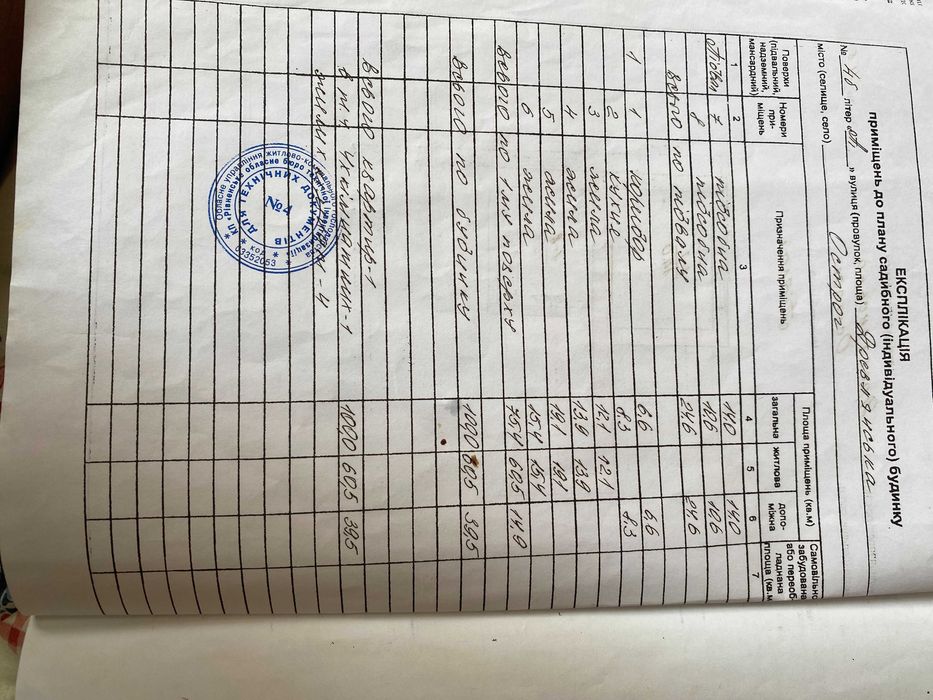 ЕКСПЛІКАЦІЯ
приміщень до плану садибного (індивідуального) будинку
№ 4б літер „А" » вулиця (провулок, площа) Древлянська
місто (селище, село) Острог
Поверхи (підвальний, надземний, мансардний) Номери приміщень Призначення приміщень Площа приміщень (кв.м) Самовільно забудована або переобладнана площа (кв.м
загальна житлова допоміжна
1 2 3 4 5 6 7
Підвал 7 підсобна 14.0 14.0
8 підсобна 10.6 10.6
Всього по підвалу 24.6 24.6
1 1 коридор 6.6 6.6
2 кухня 8.3 8.3
3 жила 12.1 12.1
4 жила 13.9 13.9
5 жила 19.1 19.1
6 жила 15.4 15.4
Всього по 1му поверху 75.4 60.5 14.9
Всього по будинку 100.0 60.5 39.5
Всього квартир-1
в т.ч. 4х кімнатних-1 100.0 60.5 39.5
жилих кімнат-4
Обласне управління житлово-комунального господарства
КП «Рівненське обласне бюро технічної інвентаризації»
ДЛЯ ТЕХНІЧНИХ ДОКУМЕНТІВ
№4
код
03352053